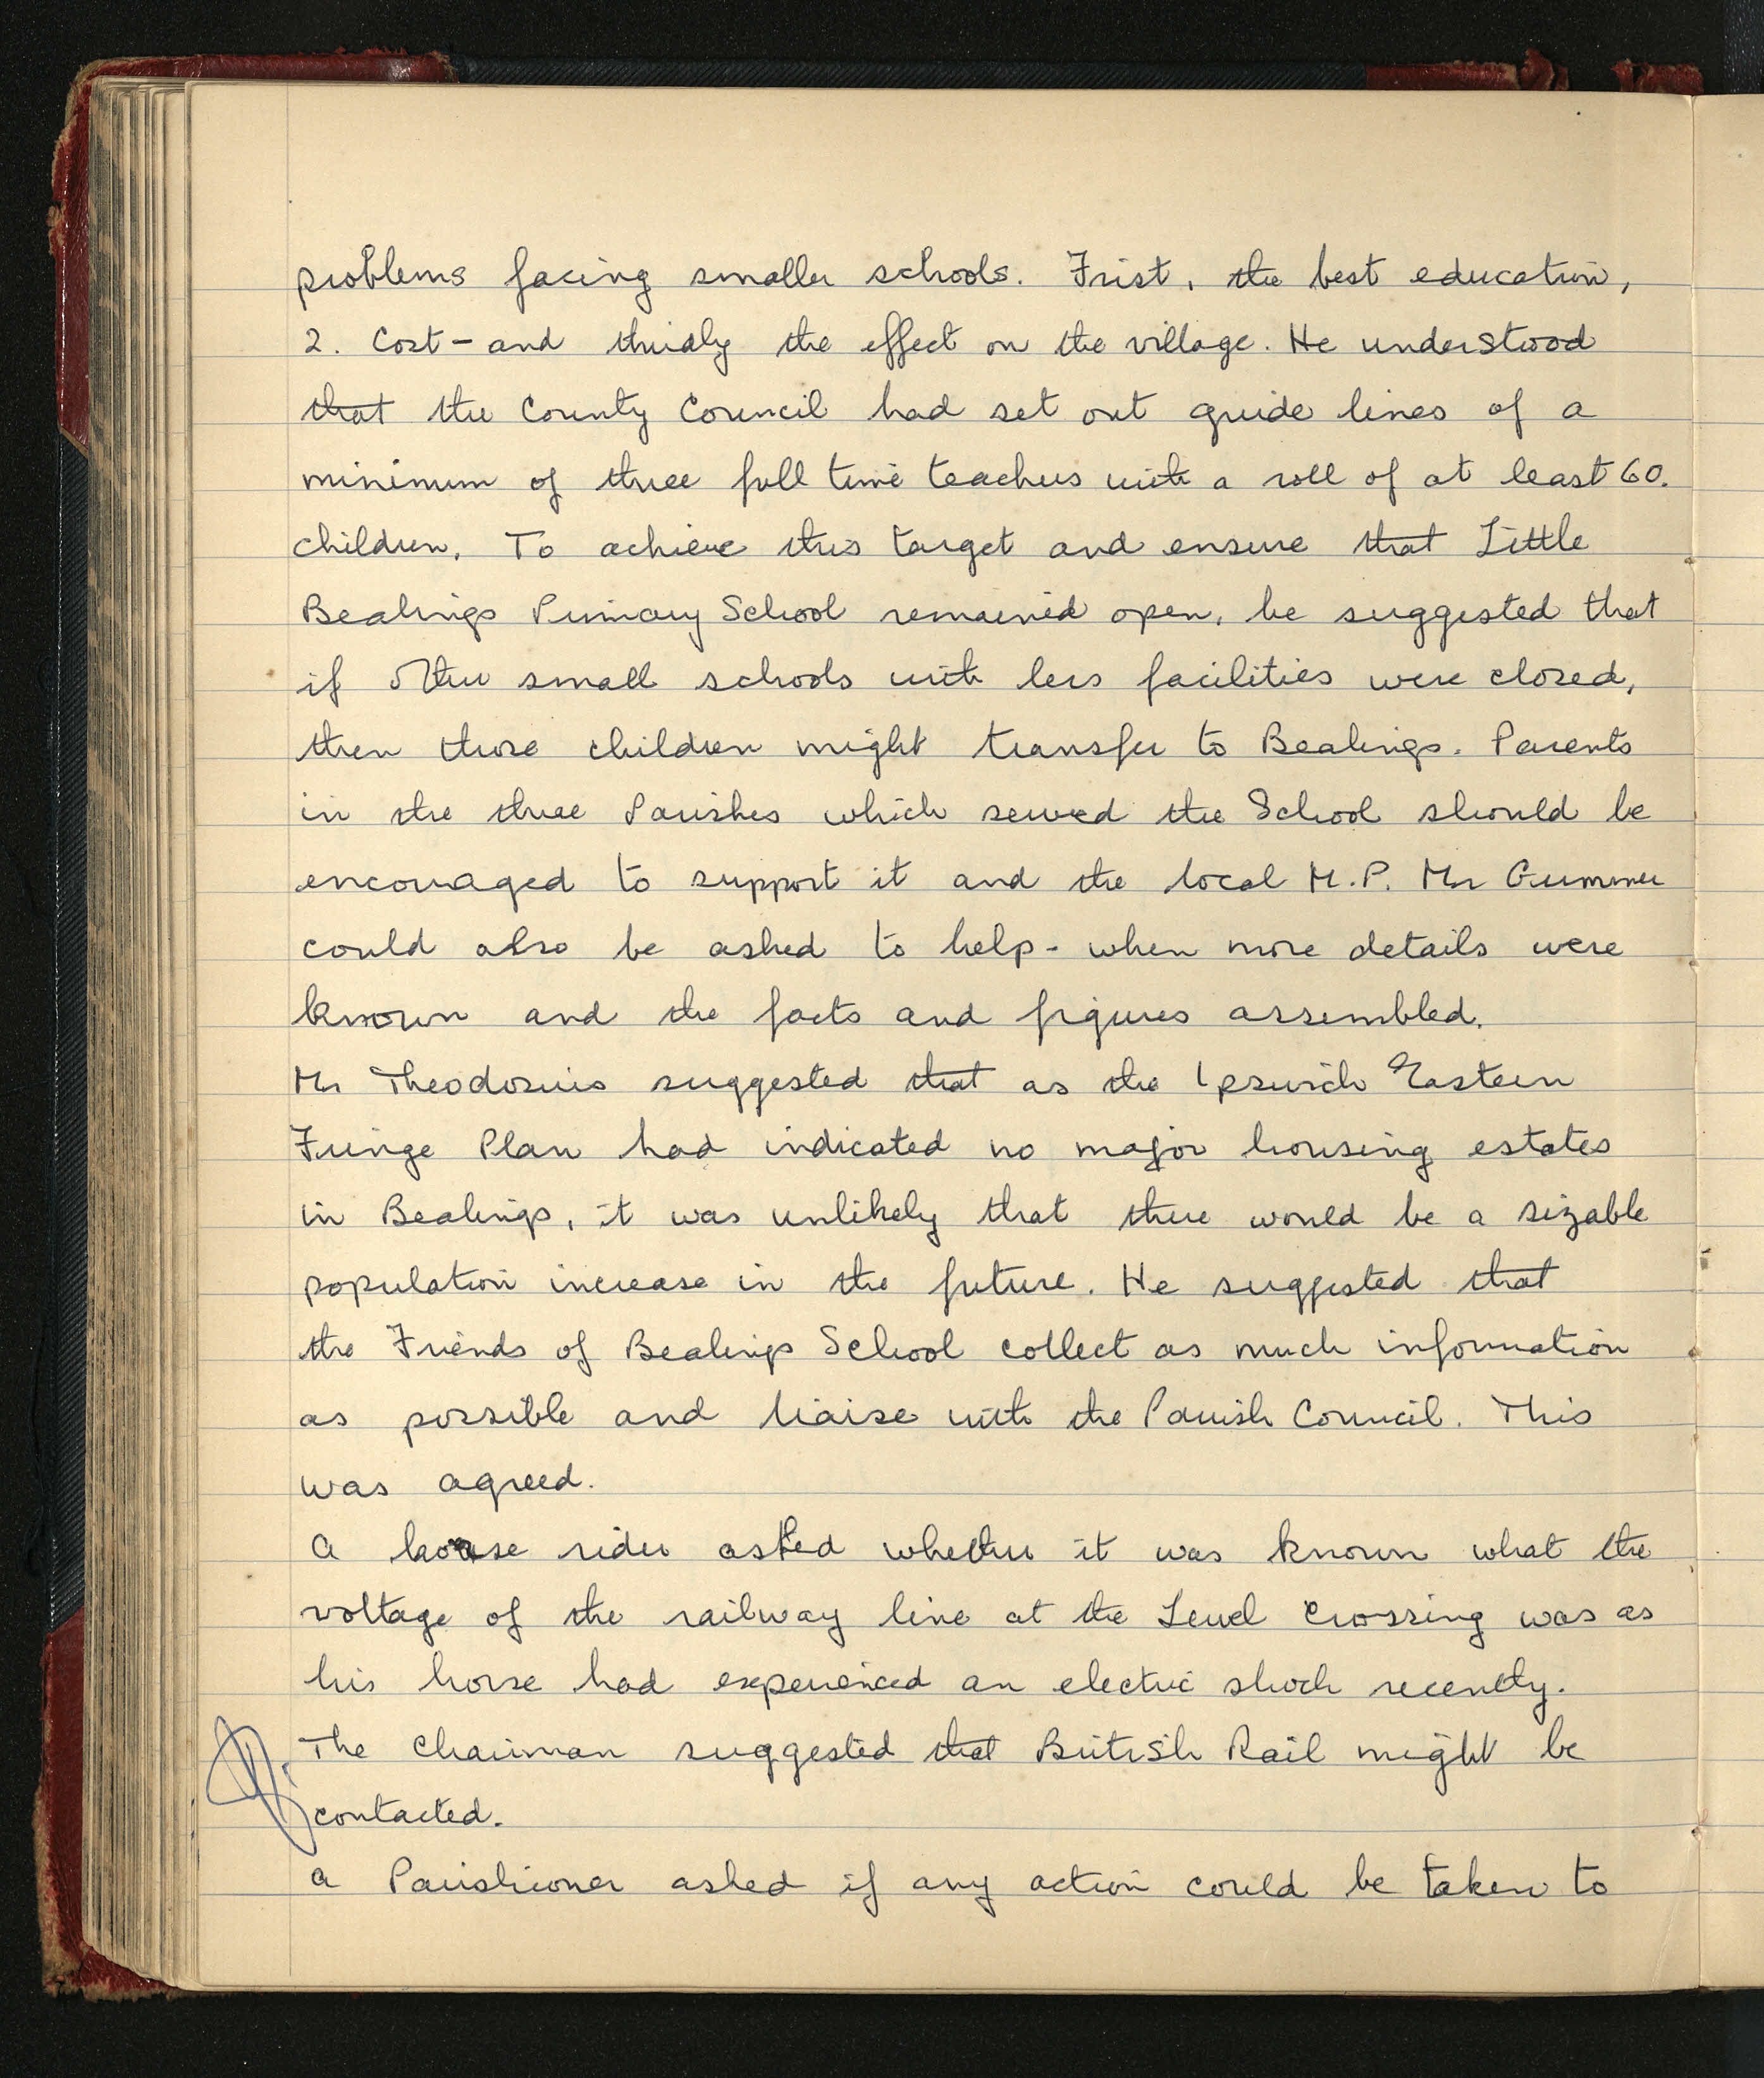 problems facing smaller schools. Frist, the best education,
2. Cost - and thirdly the effect on the village. He understood
that the County Council had set out guide lines of a
minimum of three full time teachers with a roll of at least 60.
children. To achieve this target and ensure that Little
Bealings Primary School remained open, he suggested that
if other small schools with less facilities were closed,
then those children might transfer to Bealings. Parents
in the three Parishes which served the School should be
encouraged to support it and the local M.P. Mr Gummer
could also be asked to help - when more details were
known and the facts and figures assembled.
Mr Theodosius suggested that as the Ipswich Eastern
Fringe Plan had indicated no major housing estates
in Bealings, it was unlikely that there would be a sizable
population increase in the future. He suggested that
the Friends of Bealings School collect as much information
as possible and liaise with the Parish Council. This
was agreed.
A horse rider asked whether it was known what the
voltage of the railway line at the Level Crossing was as
his horse had experienced an electric shock recently.
The Chairman suggested that British Rail might be
contacted.
A Parishioner asked if any action could be taken to